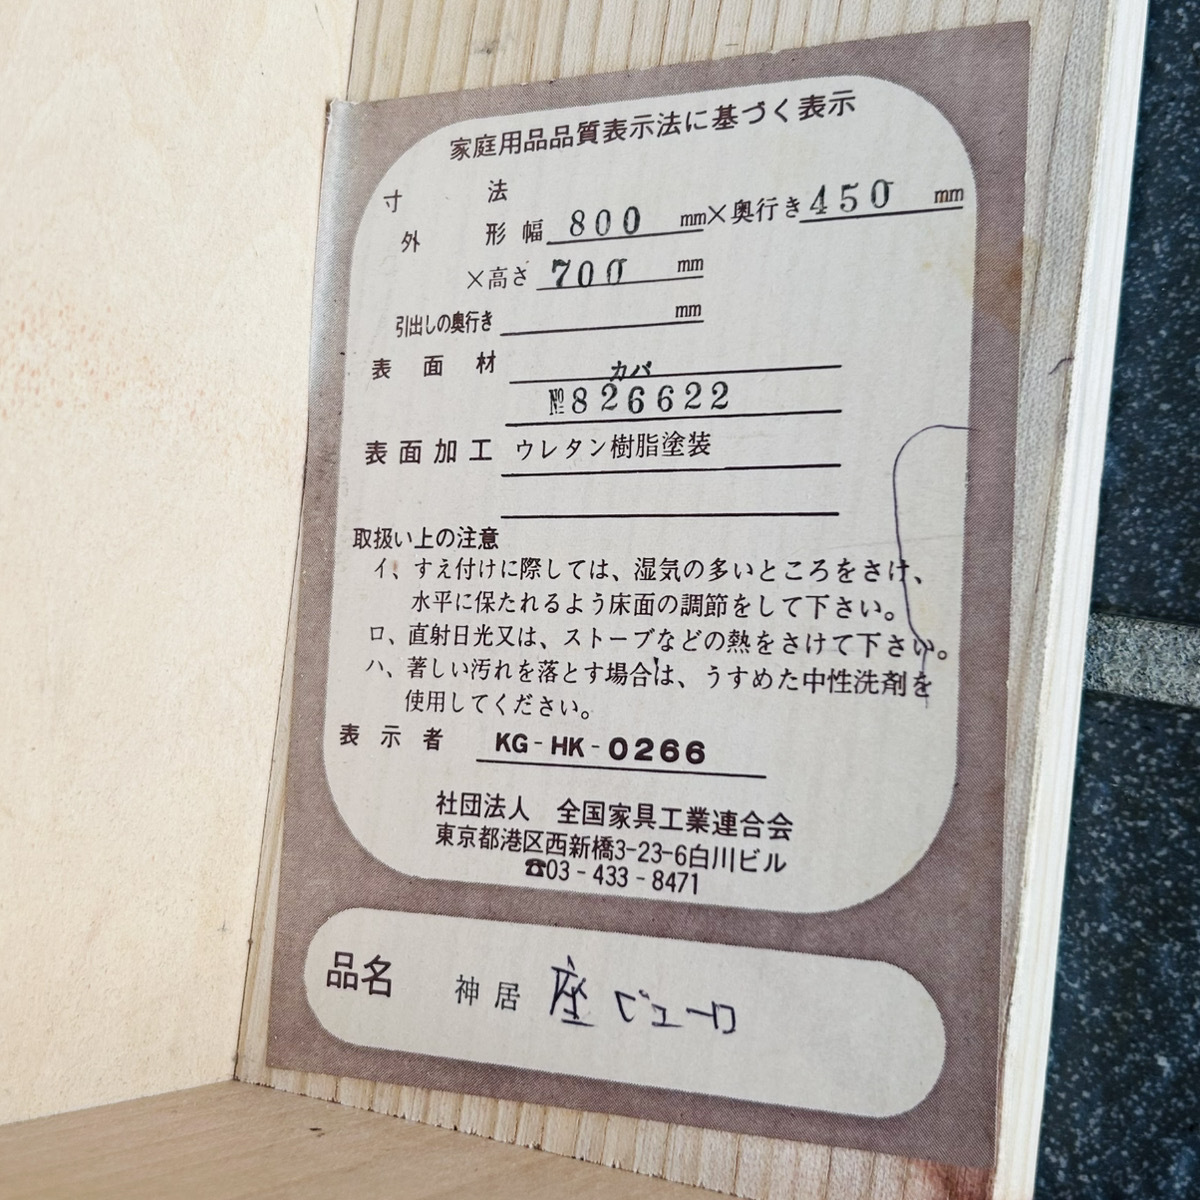 家庭用品品質表示法に基づく表示
寸法
外形 幅 800 mm×奥行き 450 mm
×高さ 700 mm
引出しの奥行き mm
表面材 カバ
№826622
表面加工 ウレタン樹脂塗装
取扱い上の注意
イ、すえ付けに際しては、湿気の多いところをさけ、
水平に保たれるよう床面の調節をして下さい。
ロ、直射日光又は、ストーブなどの熱をさけて下さい。
ハ、著しい汚れを落とす場合は、うすめた中性洗剤を
使用してください。
表示者 KG-HK-0266
社団法人 全国家具工業連合会
東京都港区西新橋3-23-6白川ビル
☎03-433-8471
品名 神居 座ビューロ